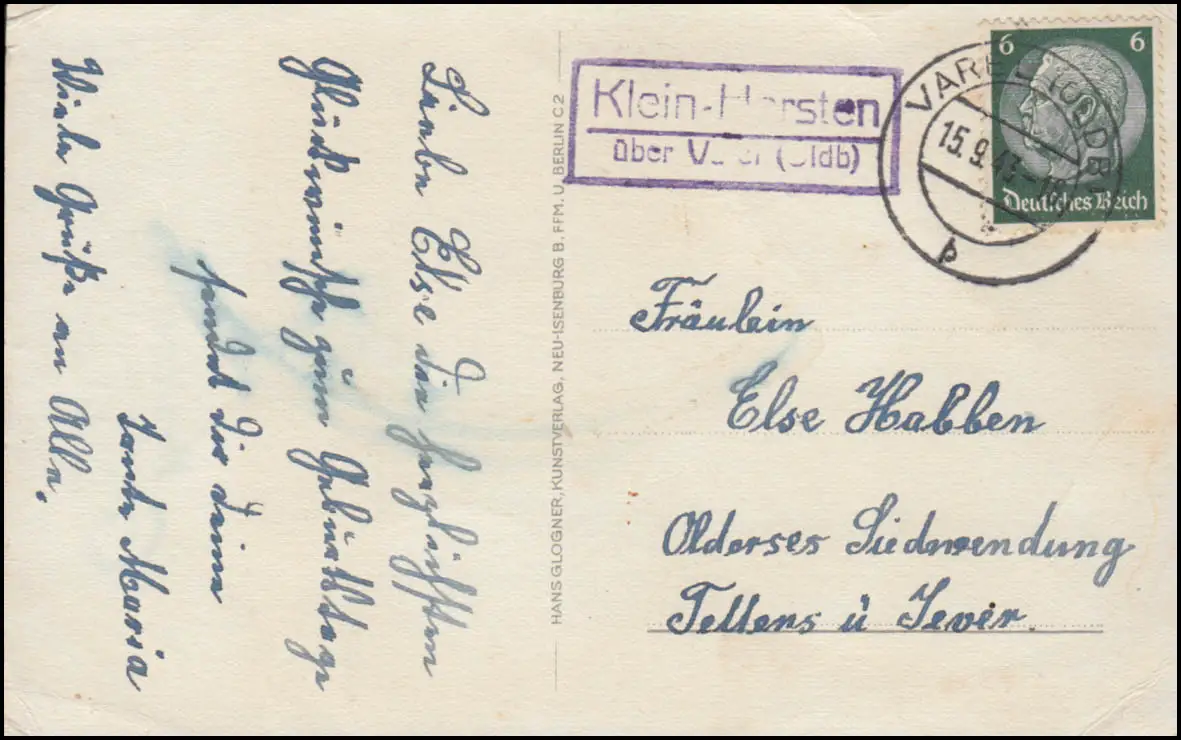 Liebe Else die herzlichsten
Glückwünsche zum Geburtstage
sendet dir deine
Tante Maria
Viele Grüße an Alle.
HANS GLOGNER, KUNSTVERLAG, NEU-ISENBURG B. FFM. U. BERLIN C 2
Klein-Horsten
über Varel (Oldb)
VAREL (OLDB)
15.9.43-18
b
6 6
Deutsches Reich
Fräulein
Else Habben
Siedwendung
Tettens ü Jever.